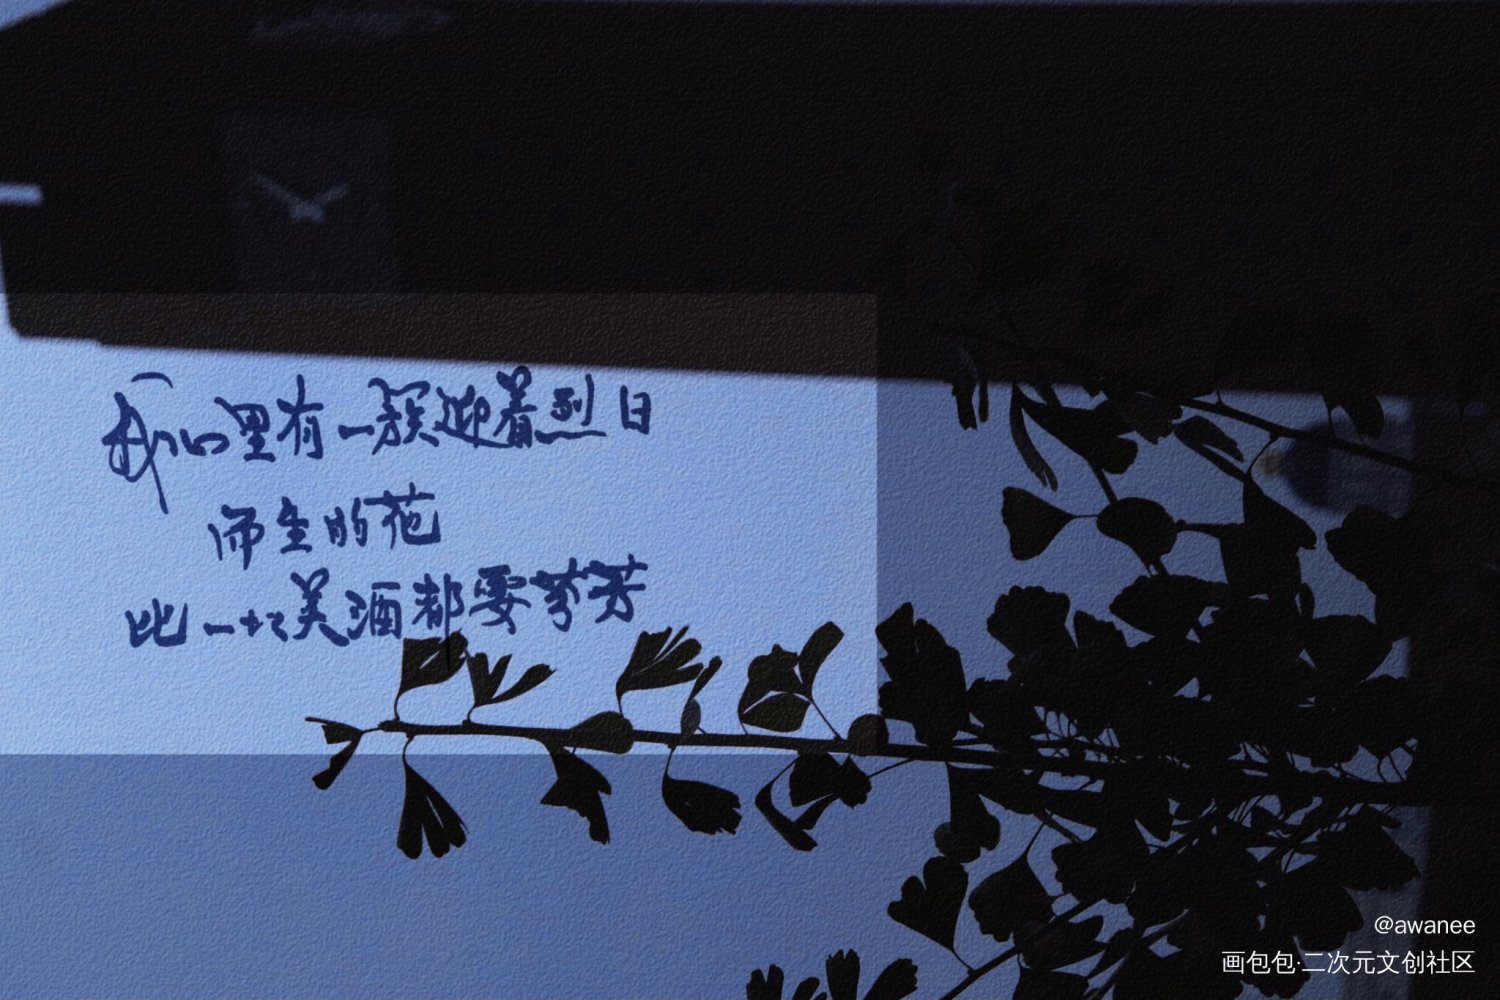 我心里有一簇迎着烈日
而生的花
比一切美酒都要芬芳
@awanee
画包包·二次元文创社区